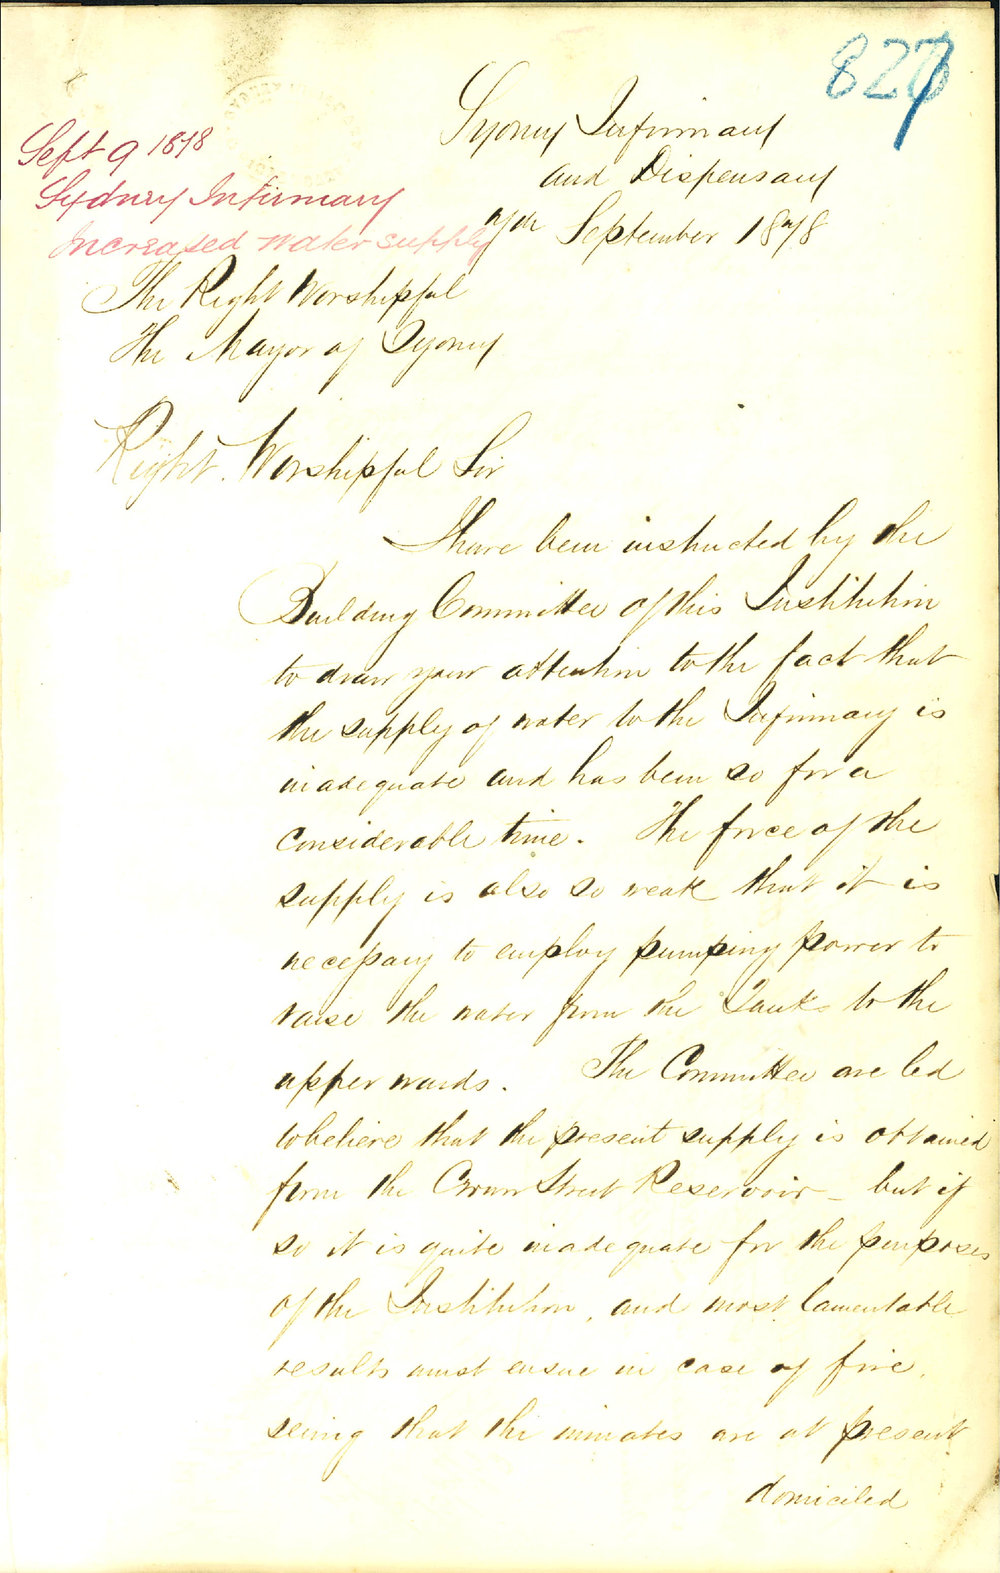 827
Sydney Infirmary
and Dispensary
7th September 1878
Sept 9 1878
Sydney Infirmary
Increased water supply
The Right Worshipful
The Mayor of Sydney
Right Worshipful Sir
I have been instructed by the
Building Committee of this Institution
to draw your attention to the fact that
the supply of water to the Infirmary is
inadequate and has been so for a
considerable time. The force of the
supply is also so weak that it is
necessary to employ pumping power to
raise the water from the Tanks to the
upper wards. The Committee are led
to believe that the present supply is obtained
from the Crown Street Reservoir - but if
so it is quite inadequate for the purposes
of the Institution, and most lamentable
results must ensue in case of fire,
seeing that the inmates are at present
domiciled